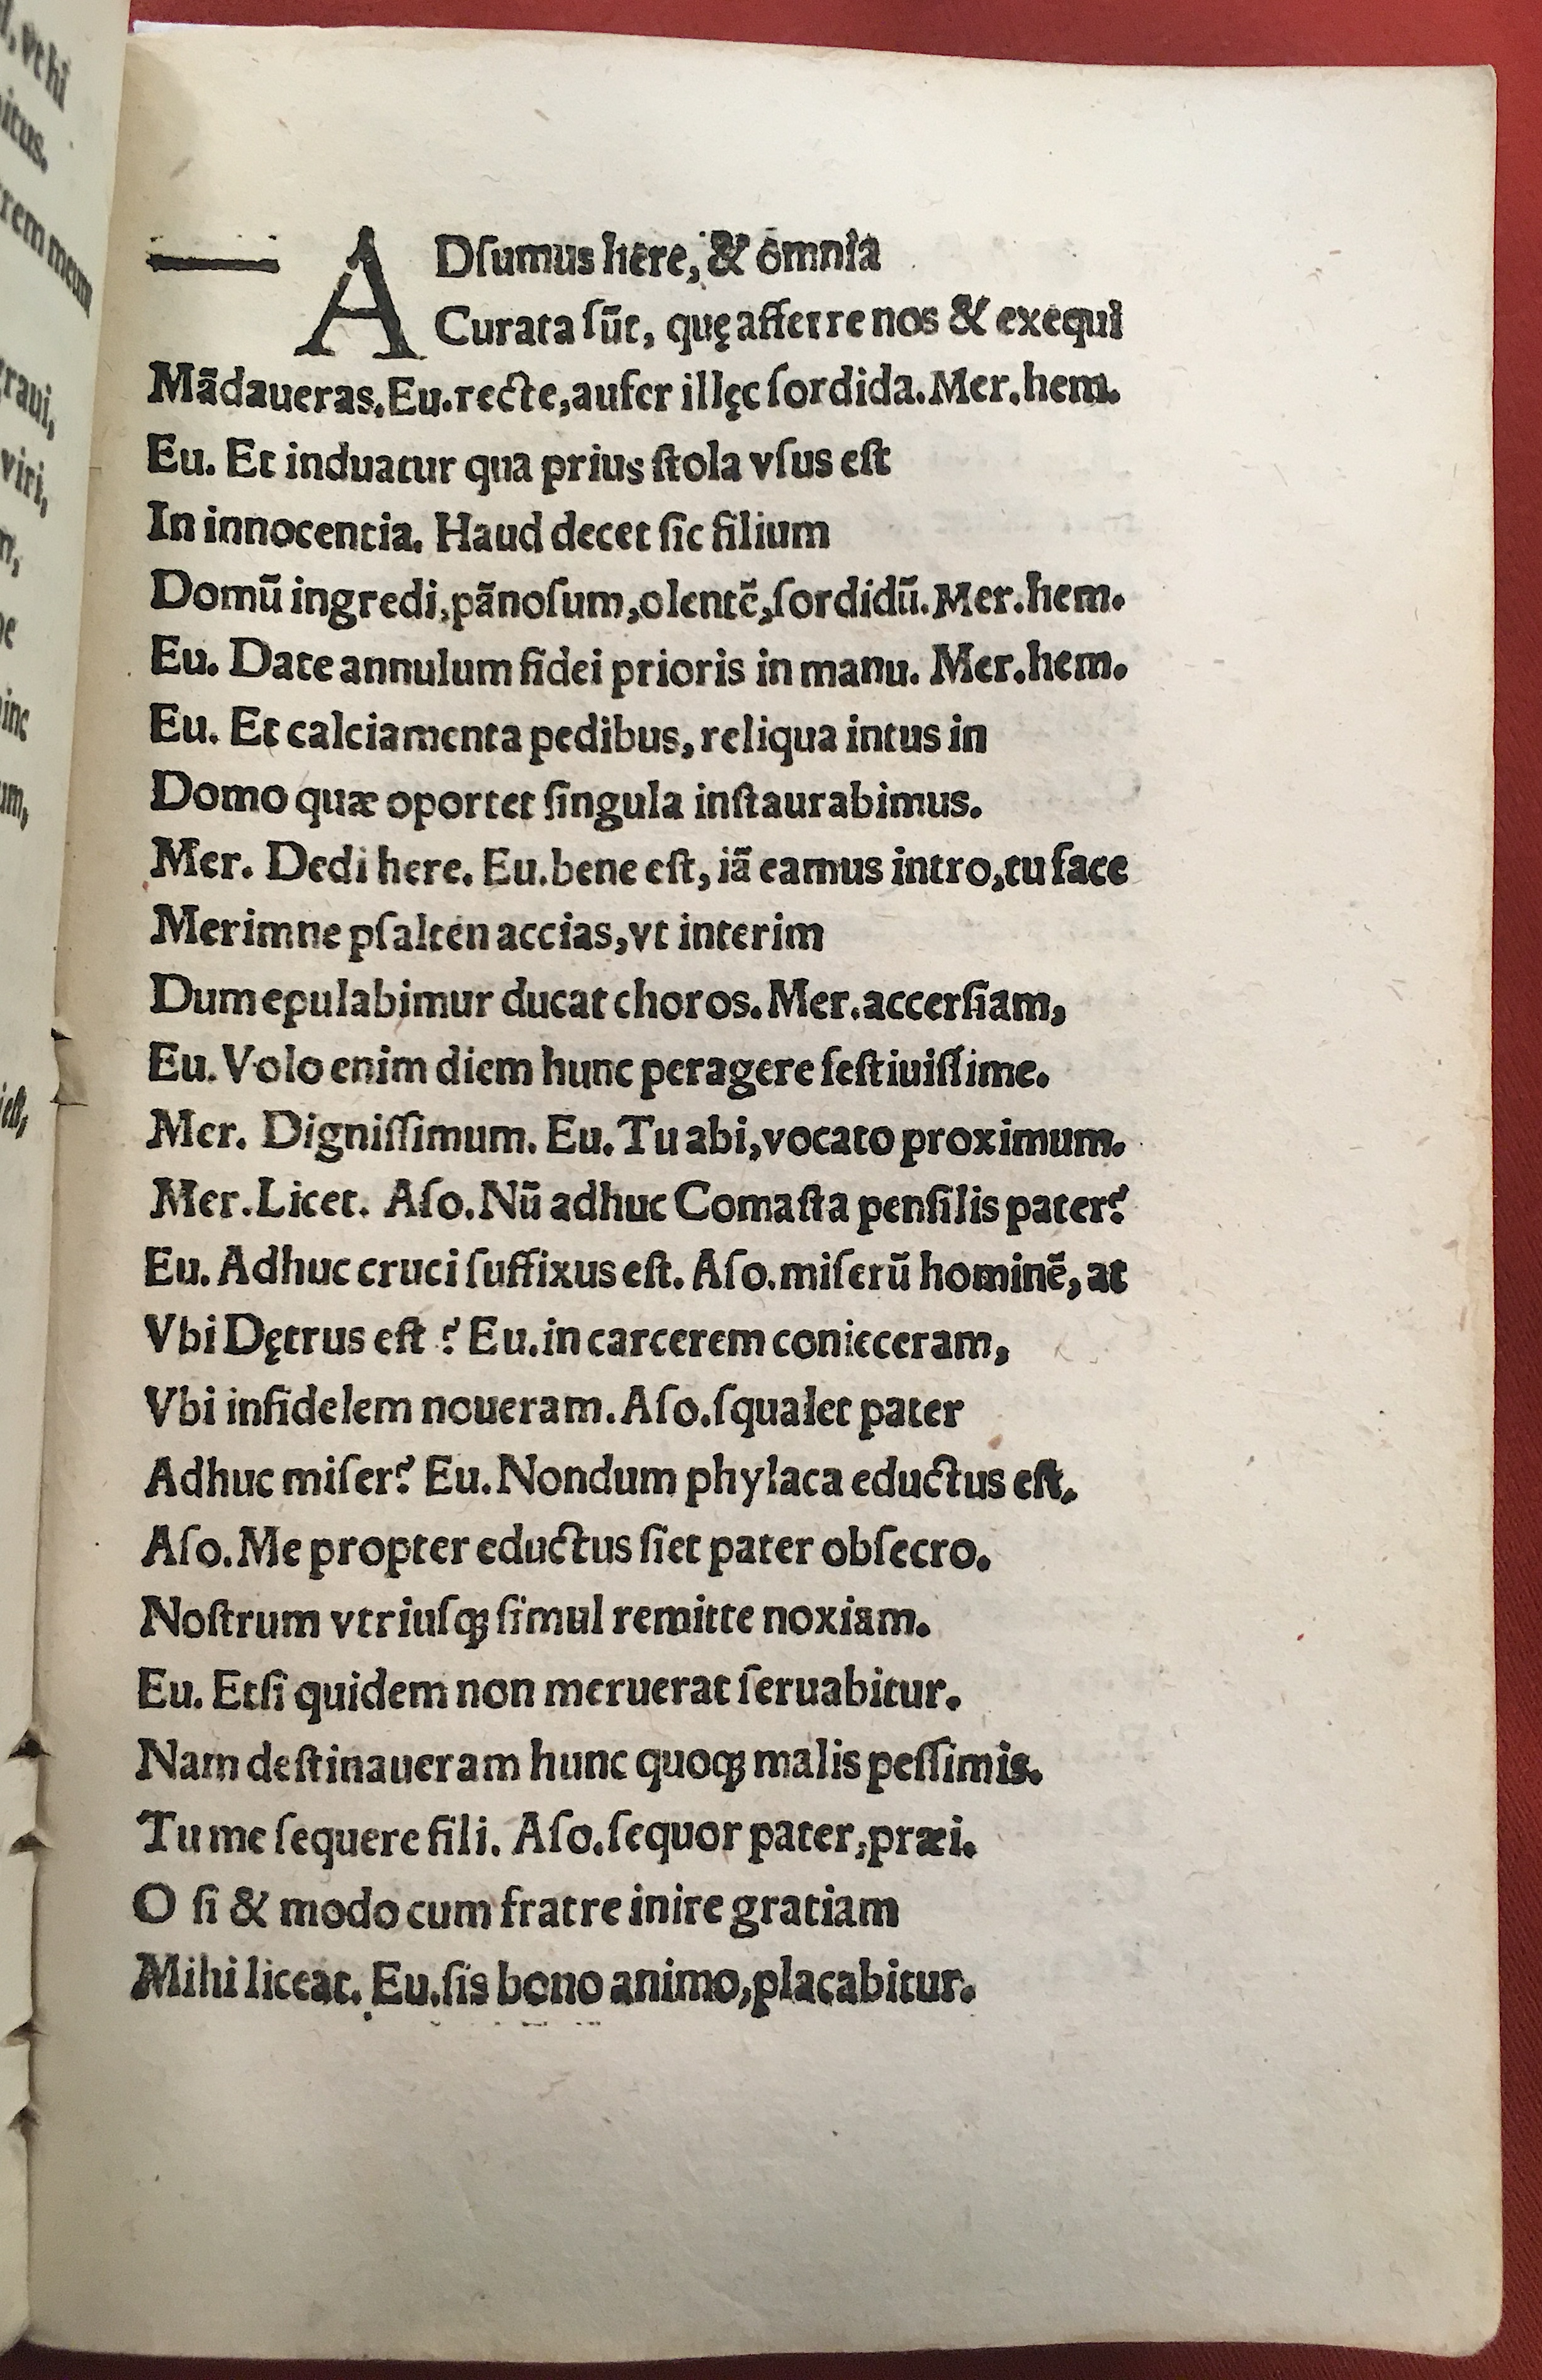 ADſumus here, & omnia
Curata ſūt, quę afferre nos & exequi
Mādaueras. Eu. recte, aufer illęc ſordida. Mer. hem.
Eu. Et induatur qua prius ſtola vſus eſt
In innocentia. Haud decet ſic filium
Domū ingredi, pānoſum, olentē, ſordidū. Mer. hem.
Eu. Date annulum fidei prioris in manu. Mer. hem.
Eu. Et calciamenta pedibus, reliqua intus in
Domo quæ oportet ſingula inſtaurabimus.
Mer. Dedi here. Eu. bene eſt, iā eamus intro, tu face
Merimne pſalten accias, vt interim
Dum epulabimur ducat choros. Mer. accerſiam,
Eu. Volo enim diem hunc peragere feſtiuiſſime.
Mer. Digniſſimum. Eu. Tu abi, vocato proximum.
Mer. Licet. Aſo. Nū adhuc Comaſta penſilis pater?
Eu. Adhuc cruci ſuffixus eſt. Aſo. miſerū hominē, at
Vbi Dętrus eſt ? Eu. in carcerem conieceram,
Vbi infidelem noueram. Aſo. ſqualet pater
Adhuc miſer? Eu. Nondum phylaca eductus eſt.
Aſo. Me propter eductus ſiet pater obſecro.
Noſtrum vtriuſqꝫ ſimul remitte noxiam.
Eu. Etſi quidem non meruerat ſeruabitur.
Nam deſtinaueram hunc quoqꝫ malis peſſimis.
Tu me ſequere fili. Aſo. ſequor pater, præi.
O ſi & modo cum fratre inire gratiam
Mihi liceat. Eu. ſis bono animo, placabitur.